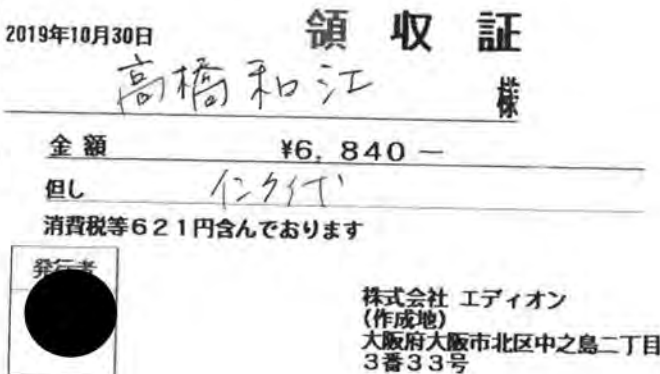 2019年10月30日
領収証
高橋和江 様
金額 ¥6,840－
但し インク代
消費税等621円含んでおります
発行者
株式会社 エディオン
(作成地)
大阪府大阪市北区中之島二丁目
3番33号